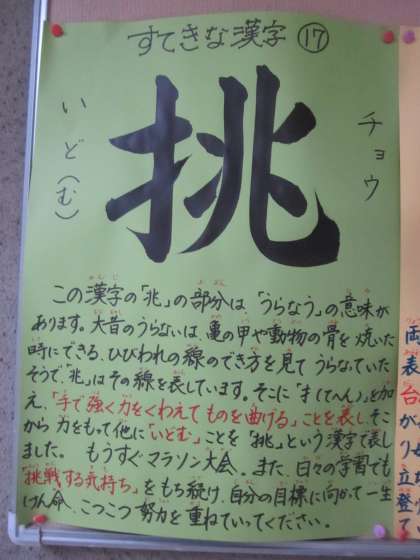 すてきな漢字 ⑰
挑
チョウ
いど(む)
この漢字の「兆」の部分は「うらなう」の意味が
あります。大昔のうらないは、亀の甲や動物の骨を焼いた
時にできる、ひびわれの線のでき方を見てうらなっていた
そうで「兆」はその線を表しています。そこに「扌(てへん)」を加
え、「手で強く力をくわえてものを曲げる」ことを表し、そこ
から力をもって他に「いどむ」ことを「挑」という漢字で表し
ました。 もうすぐマラソン大会。また、日々の学習でも
「挑戦する気持ち」をもち続け、自分の目標に向かって一生
けん命、こつこつ努力を重ねていってください。
両
表
台
が
り
立
登
て